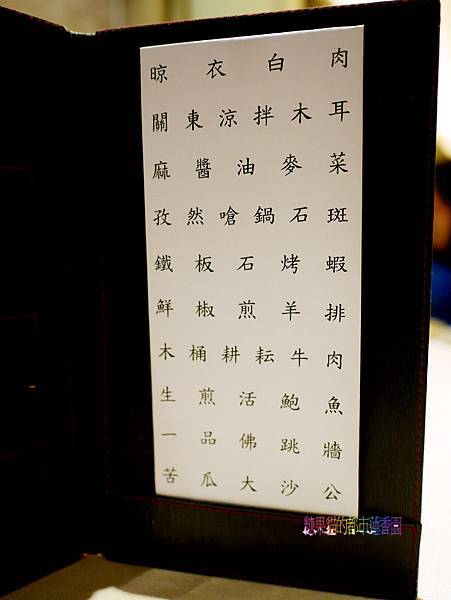 晾衣白肉
關東涼拌木耳
麻醬油麥菜
孜然嗆鍋石斑
鐵板石烤蝦
鮮椒煎羊排
木桶耕耘牛肉
生煎活鮑魚
一品佛跳牆
苦瓜大沙公
糖果貓的都市蓮香園